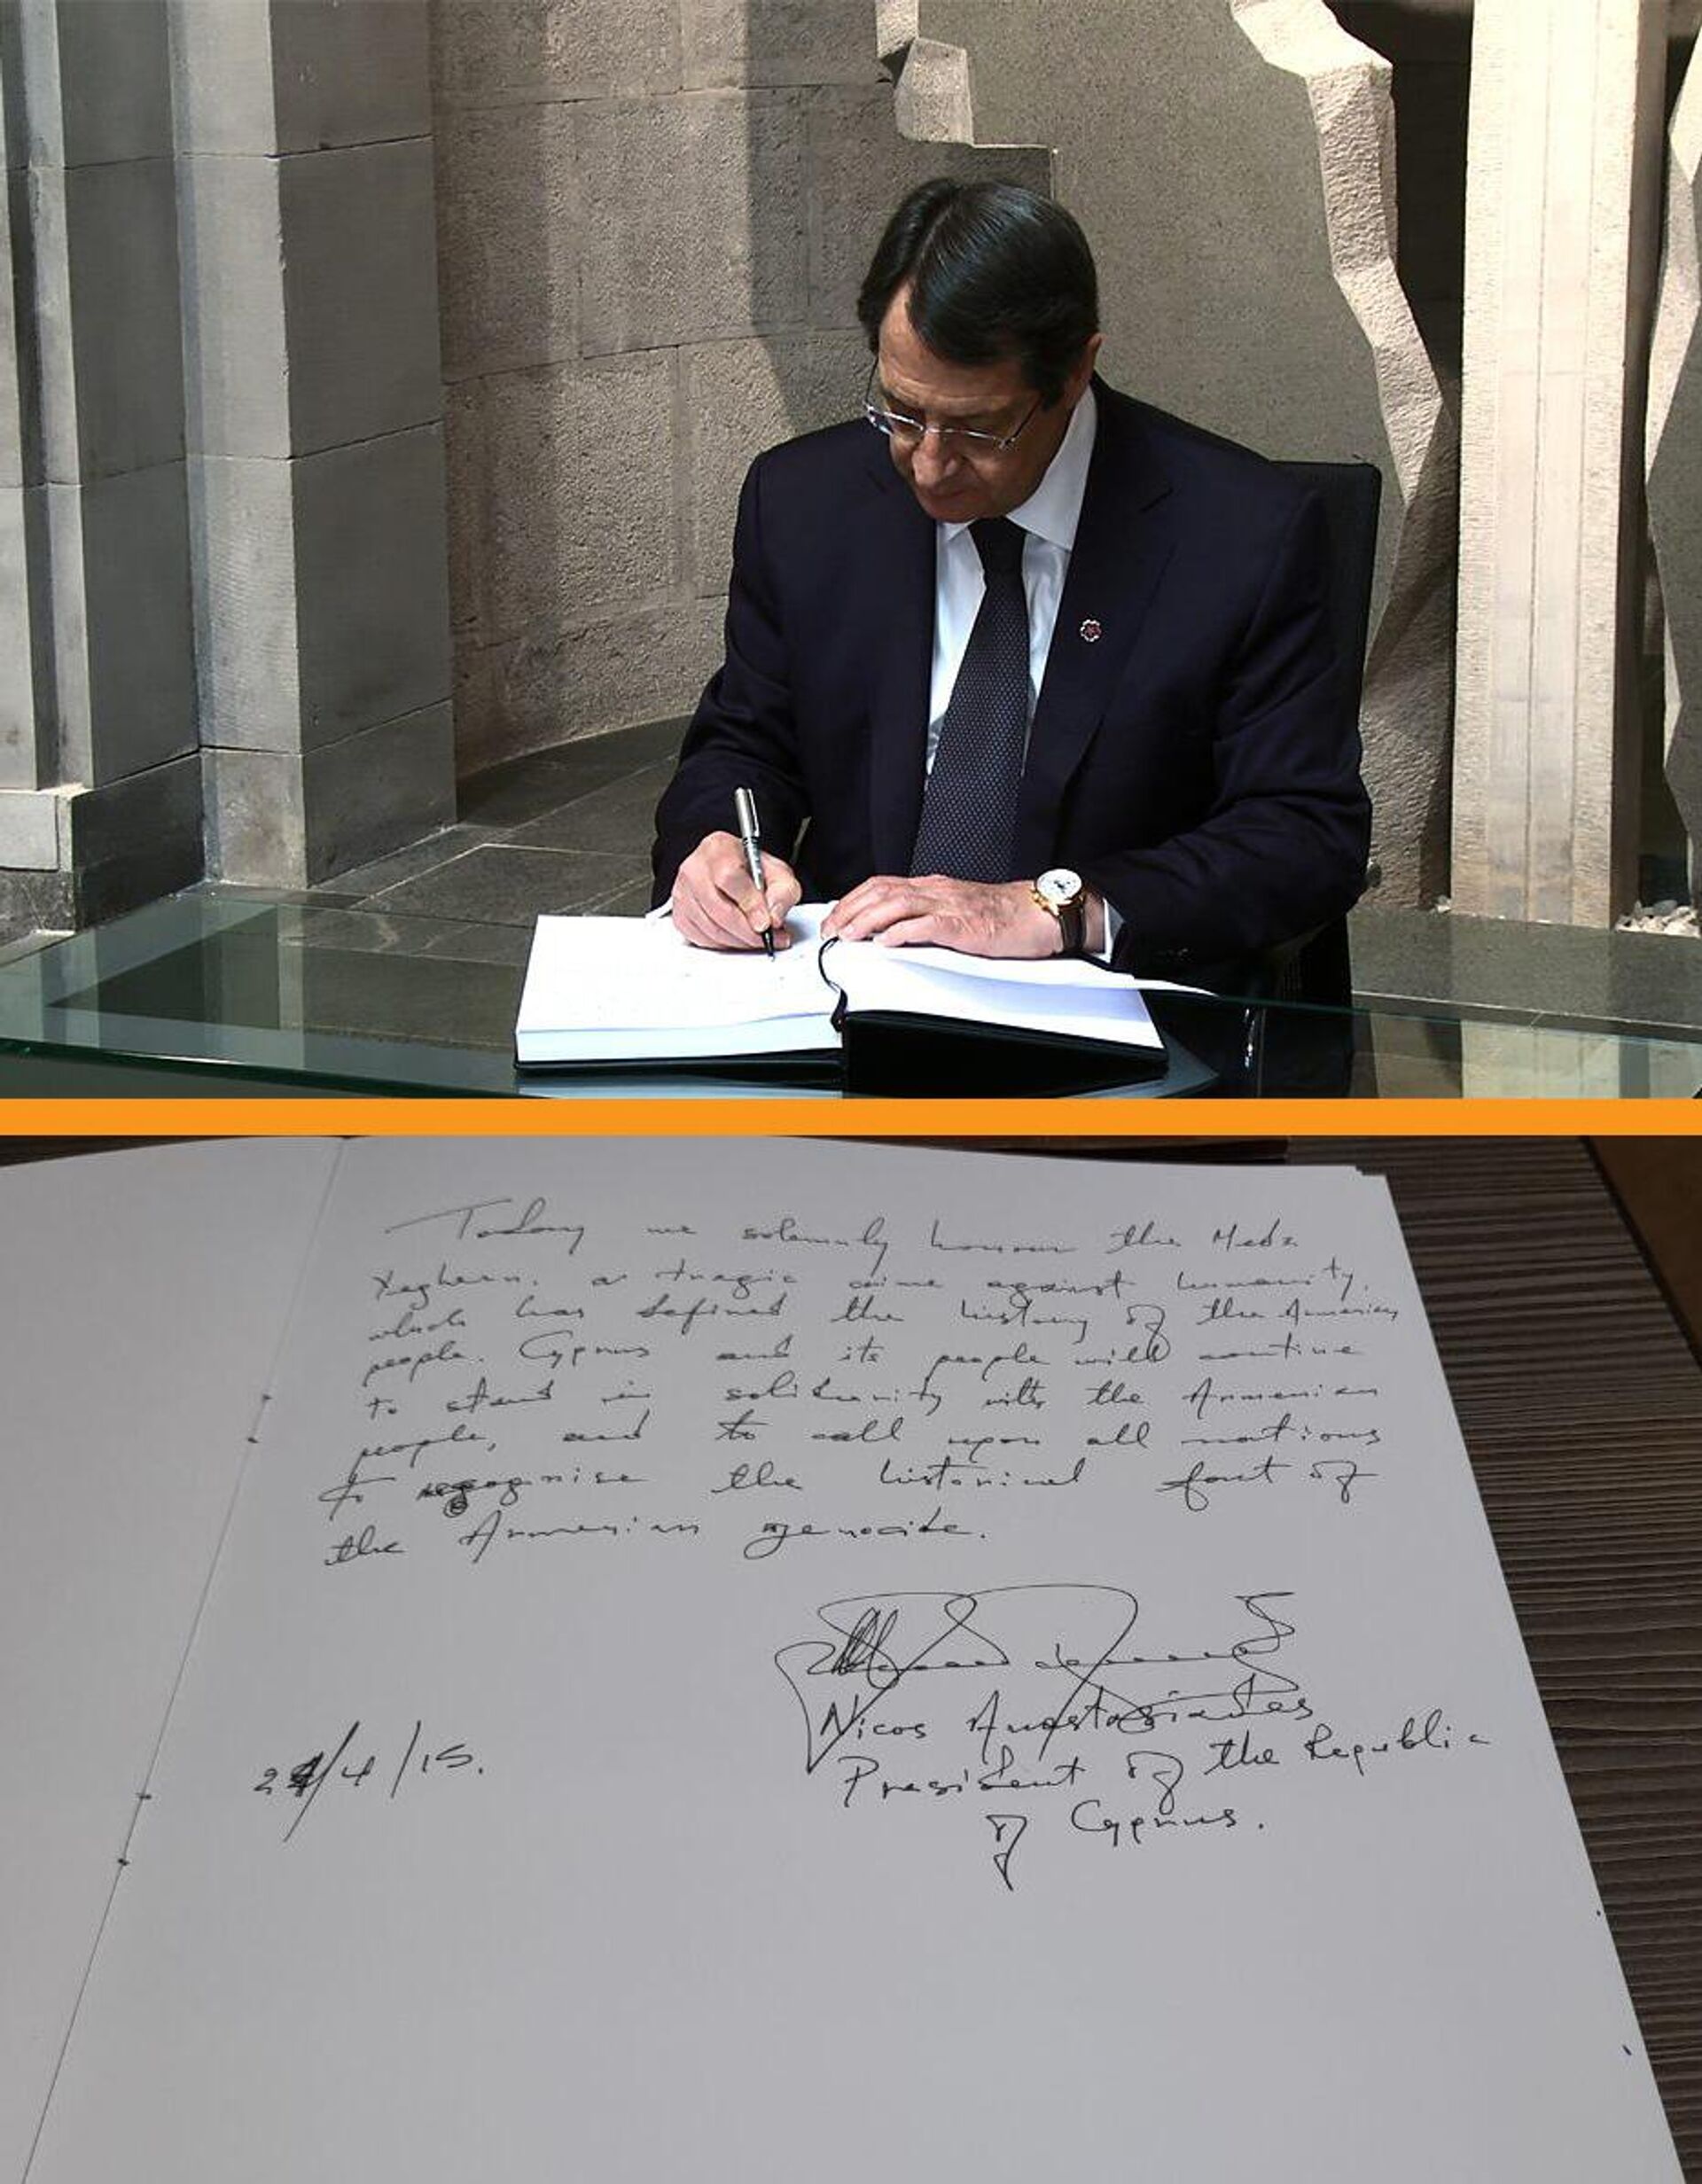 Today we solemnly honour the Medz
Yeghern. a tragic crime against humanity,
which has defined the history of the Armenian
people. Cyprus and its people will continue
to stand in solidarity with the Armenian
people, and to call upon all nations
to recognise the historical fact of
the Armenian genocide.
Nicos Anastasiades
President of the Republic
of Cyprus.
24/4/15.